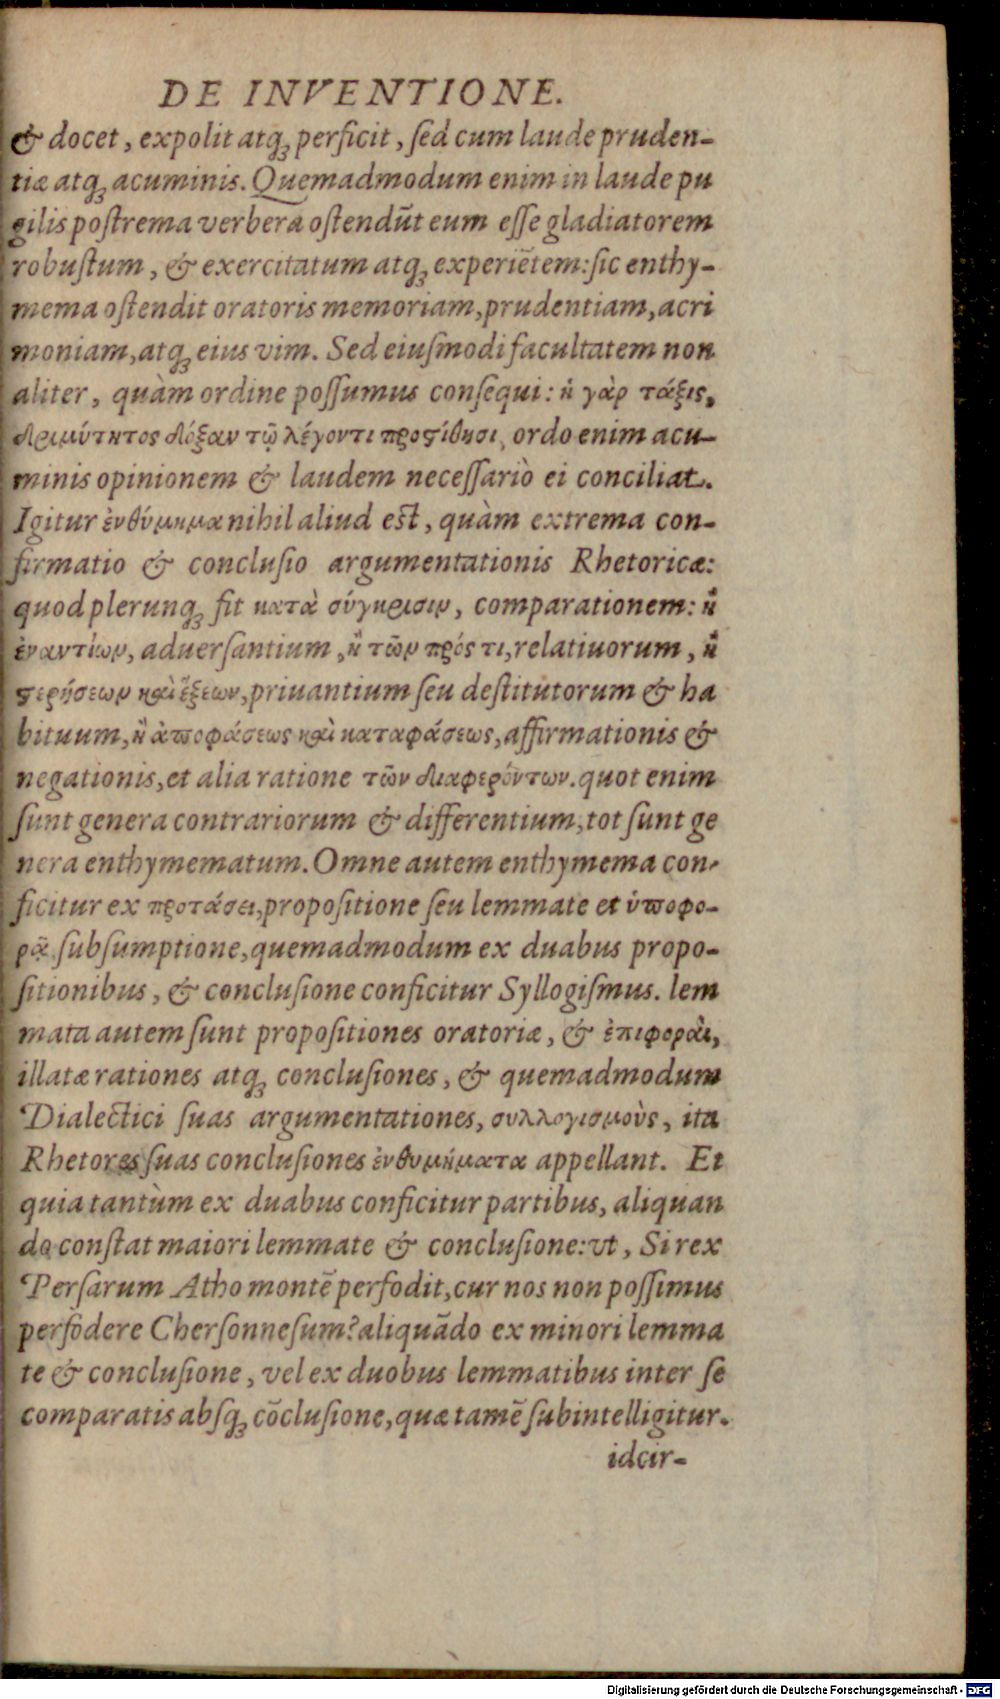 DE INVENTIONE.
& docet, expolit atq; perficit, ſed cum laude pruden-
tiæ atq; acuminis. Quemadmodum enim in laude pu
gilis poſtrema verbera oſtendūt eum eſſe gladiatorem
robuſtum, & exercitatum atq; experiētem: ſic enthy-
mema oſtendit oratoris memoriam, prudentiam, acri
moniam, atq; eius vim. Sed eiuſmodi facultatem non
aliter, quàm ordine poſſumus conſequi: ἡ γὰρ τάξις,
δριμύτητος δόξαν τῷ λέγοντι προςίθησι, ordo enim acu-
minis opinionem & laudem neceſſariò ei conciliat.
Igitur ἐνθύμημα nihil aliud eſt, quàm extrema con-
firmatio & concluſio argumentationis Rhetoricæ:
quod plerunq; fit κατὰ σύγκρισιν, comparationem: ἢ
ἐναντίων, aduerſantium, ἢ τῶν πρός τι, relatiuorum, ἢ
ϛερήσεων καὶ ἕξεων, priuantium ſeu deſtitutorum & ha
bituum, ἢ ἀποφάσεως καὶ καταφάσεως, affirmationis &
negationis, et alia ratione τῶν διαφερόντων. quot enim
ſunt genera contrariorum & differentium, tot ſunt ge
nera enthymematum. Omne autem enthymema con-
ficitur ex προτάσει, propoſitione ſeu lemmate et ὑποφο-
ρᾷ ſubſumptione, quemadmodum ex duabus propo-
ſitionibus, & concluſione conficitur Syllogiſmus. lem
mata autem ſunt propoſitiones oratoriæ, & ἐπιφοραὶ,
illatæ rationes atq; concluſiones, & quemadmodum
Dialectici ſuas argumentationes, συλλογισμοὺς, ita
Rhetores ſuas concluſiones ἐνθυμήματα appellant. Et
quia tantùm ex duabus conficitur partibus, aliquan
do conſtat maiori lemmate & concluſione: vt, Si rex
Perſarum Atho montē perfodit, cur nos non poſſimus
perfodere Cherſonneſum? aliquādo ex minori lemma
te & concluſione, vel ex duobus lemmatibus inter ſe
comparatis abſq; cōcluſione, quæ tamē ſubintelligitur.
idcir-
Digitalisierung gefördert durch die Deutsche Forschungsgemeinschaft - DFG